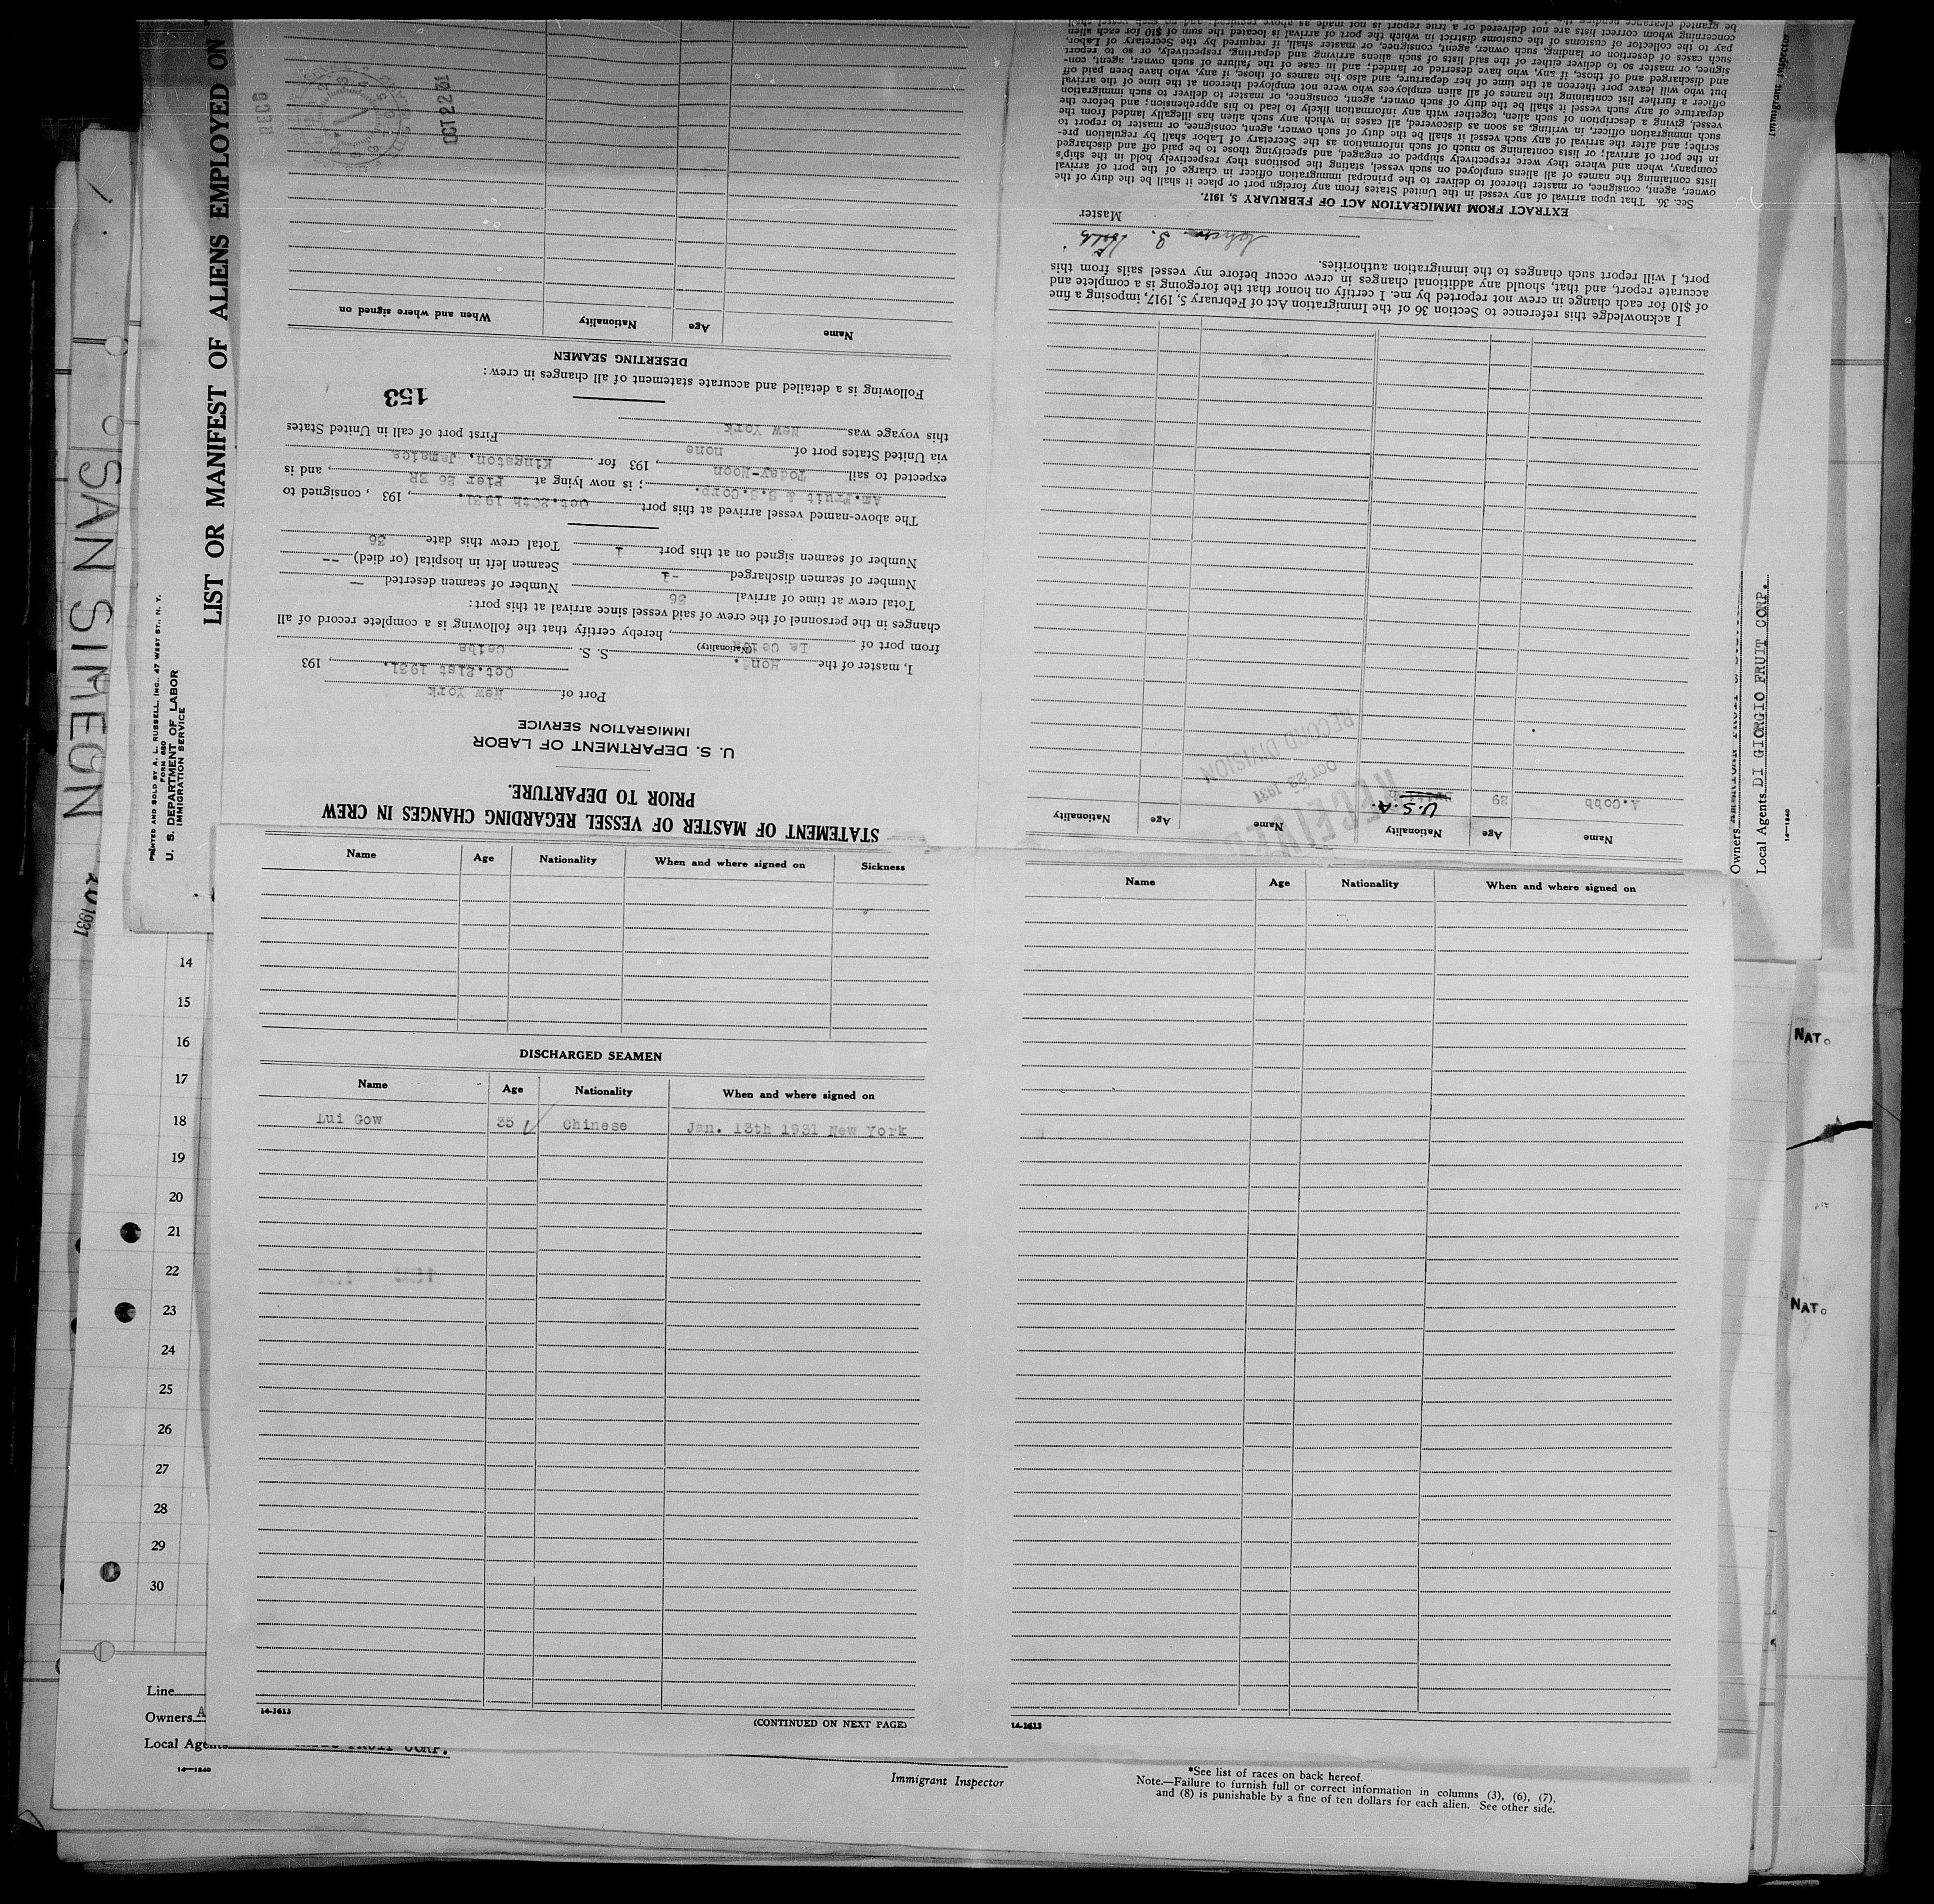 STATEMENT OF MASTER OF VESSEL REGARDING CHANGES IN CREW
PRIOR TO DEPARTURE.
U. S. DEPARTMENT OF LABOR
IMMIGRATION SERVICE
Port of New York
Oct. 21st 1931. , 193
I, master of the Hond. S. S. Ceiba
(Nationality)
from port of La Ceiba , hereby certify that the following is a complete record of all
changes in the personnel of the crew of said vessel since arrival at this port:
Total crew at time of arrival 36 Number of seamen deserted —
Number of seamen discharged -1 Seamen left in hospital (or died) --
Number of seamen signed on at this port 1 Total crew this date 36
The above-named vessel arrived at this port Oct.20th 1931. , 193 , consigned to
Am.Fruit & S.S.Corp. ; is now lying at Pier 26 ER , and is
expected to sail Today-Noon , 193 for Kingston, Jamaica
via United States port of none First port of call in United States
this voyage was New York
153
Following is a detailed and accurate statement of all changes in crew:
DESERTING SEAMEN
Name Age Nationality When and where signed on
REC'D
OCT 22 31
Name Age Nationality Name Age Nationality
A.Cobb 29 U.S.A.
RECEIVED
OCT 23 1931
RECORD DIVISION
I acknowledge this reference to Section 36 of the Immigration Act of February 5, 1917, imposing a fine
of $10 for each change in crew not reported by me. I certify on honor that the foregoing is a complete and
accurate report, and that, should any additional changes in crew occur before my vessel sails from this
port, I will report such changes to the immigration authorities.
Master
EXTRACT FROM IMMIGRATION ACT OF FEBRUARY 5, 1917.
Sec. 36. That upon arrival of any vessel in the United States from any foreign port or place it shall be the duty of the
owner, agent, consignee, or master thereof to deliver to the principal immigration officer in charge of the port of arrival
lists containing the names of all aliens employed on such vessel, stating the positions they respectively hold in the ship's
company, when and where they were respectively shipped or engaged, and specifying those to be paid off and discharged
in the port of arrival; or lists containing so much of such information as the Secretary of Labor shall by regulation pre-
scribe; and after the arrival of any such vessel it shall be the duty of such owner, agent, consignee, or master to report to
such immigration officer, in writing, as soon as discovered, all cases in which any such alien has illegally landed from the
vessel, giving a description of such alien, together with any information likely to lead to his apprehension; and before the
departure of any such vessel it shall be the duty of such owner, agent, consignee, or master to deliver to such immigration
officer a further list containing the names of all alien employees who were not employed thereon at the time of the arrival
but who will leave port thereon at the time of her departure, and also the names of those, if any, who have been paid off
and discharged and of those, if any, who have deserted or landed; and in case of the failure of such owner, agent, con-
signee, or master so to deliver either of the said lists of such aliens arriving and departing, respectively, or so to report
such cases of desertion or landing, such owner, agent, consignee, or master shall, if required by the Secretary of Labor,
pay to the collector of customs of the customs district in which the port of arrival is located the sum of $10 for each alien
concerning whom correct lists are not delivered or a true report is not made as above required; and no such vessel shall
be granted clearance pending the
Name Age Nationality When and where signed on Sickness
DISCHARGED SEAMEN
Name Age Nationality When and where signed on
Lui Gow 35 Chinese Jan. 13th 1931 New York
14-1613
(CONTINUED ON NEXT PAGE)
Name Age Nationality When and where signed on
14-1613
LIST OR MANIFEST OF ALIENS EMPLOYED ON
PRINTED AND SOLD BY A. L. RUSSELL, INC., 47 WEST ST., N. Y.
FORM 680
U. S. DEPARTMENT OF LABOR
IMMIGRATION SERVICE
SAN SIMEON
20 1931
14
15
16
17
18
19
20
21
22
23
24
25
26
27
28
29
30
Line
Owners A
Local Agents FRUIT CORP.
14—1240
Immigrant Inspector
*See list of races on back hereof.
Note.—Failure to furnish full or correct information in columns (3), (6), (7),
and (8) is punishable by a fine of ten dollars for each alien. See other side.
Immigrant Inspector
Owners
Local Agents DI GIORGIO FRUIT CORP.
14—1240
NAT.
NAT.